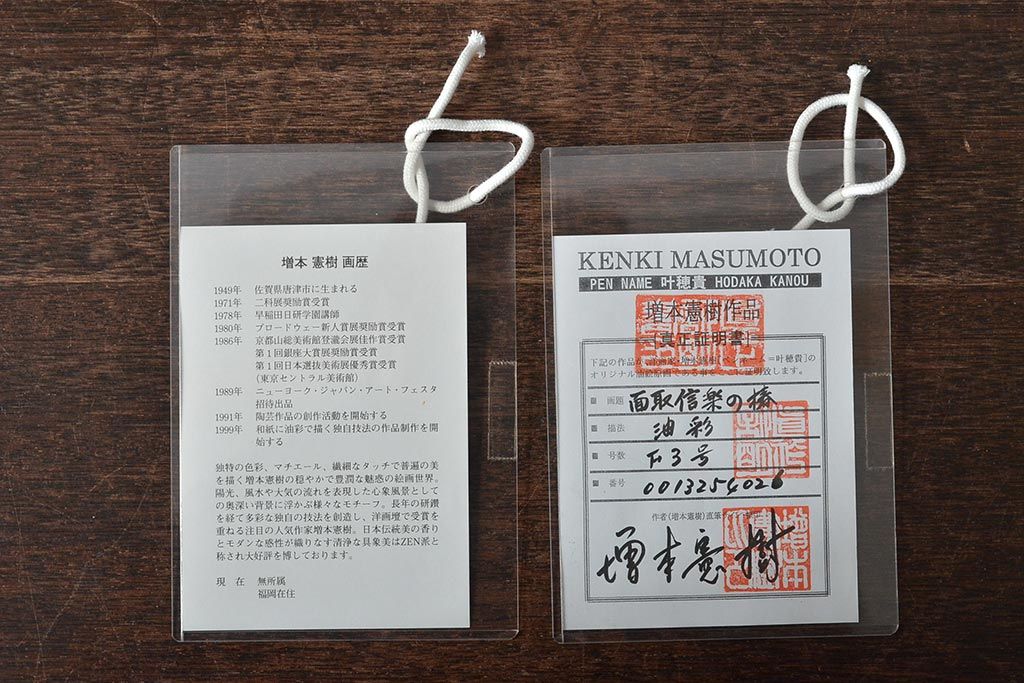 増本 憲樹 画歴
1949年 佐賀県唐津市に生まれる
1971年 二科展奨励賞受賞
1978年 早稲田日研学園講師
1980年 ブロードウェー新人賞展奨励賞受賞
1986年 京都山総美術館登瀧会展佳作賞受賞
第1回銀座大賞展奨励賞受賞
第1回日本選抜美術展優秀賞受賞
(東京セントラル美術館)
1989年 ニューヨーク・ジャパン・アート・フェスタ
招待出品
1991年 陶芸作品の創作活動を開始する
1999年 和紙に油彩で描く独自技法の作品制作を開
始する
独特の色彩、マチエール、繊細なタッチで普遍の美
を描く増本憲樹の穏やかで豊潤な魅惑の絵画世界。
陽光、風水や大気の流れを表現した心象風景として
の奥深い背景に浮かぶ様々なモチーフ。長年の研鑽
を経て多彩な独自の技法を創造し、洋画壇で受賞を
重ねる注目の人気作家増本憲樹、日本伝統美の香り
とモダンな感性が織りなす清浄な具象美はZEN派と
称され大好評を博しております。
現 在 無所属
福岡在住
KENKI MASUMOTO
PEN NAME 叶穂貴 HODAKA KANOU
増本憲樹作品
[真正証明書]
下記の作品が、 =叶穂貴]の
オリジナル 証明致します。
■ 画題 面取信楽の椿
■ 描法 油彩
■ 号数 F3号
■ 番号 0013254026
作者(増本憲樹)直筆
増本憲樹